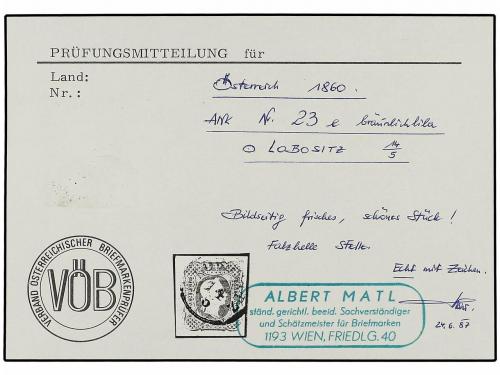 PRÜFUNGSMITTEILUNG für
Land: Österreich 1860.
Nr.: ANK Nr. 23 e bräunlichlila
O LABOSITZ 14/5
Bildseitig frisches, schönes Stück!
Falzhelle Stelle.
Echt mit Zeichen.
VERBAND ÖSTERREICHISCHER BRIEFMARKENPRÜFER
VÖB
ALBERT MATL
ständ. gerichtl. beeid. Sachverständiger
und Schätzmeister für Briefmarken
1193 WIEN, FRIEDLG. 40
24.6.87